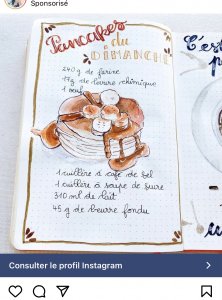 Sponsorisé
Pancakes
du
DIMANCHE
240 g de farine
17g de levure chimique
1 oeuf
1 cuillère à café de sel
1 cuillère à soupe de sucre
310 ml de lait
45 g de beurre fondu
C'est
Consulter le profil Instagram